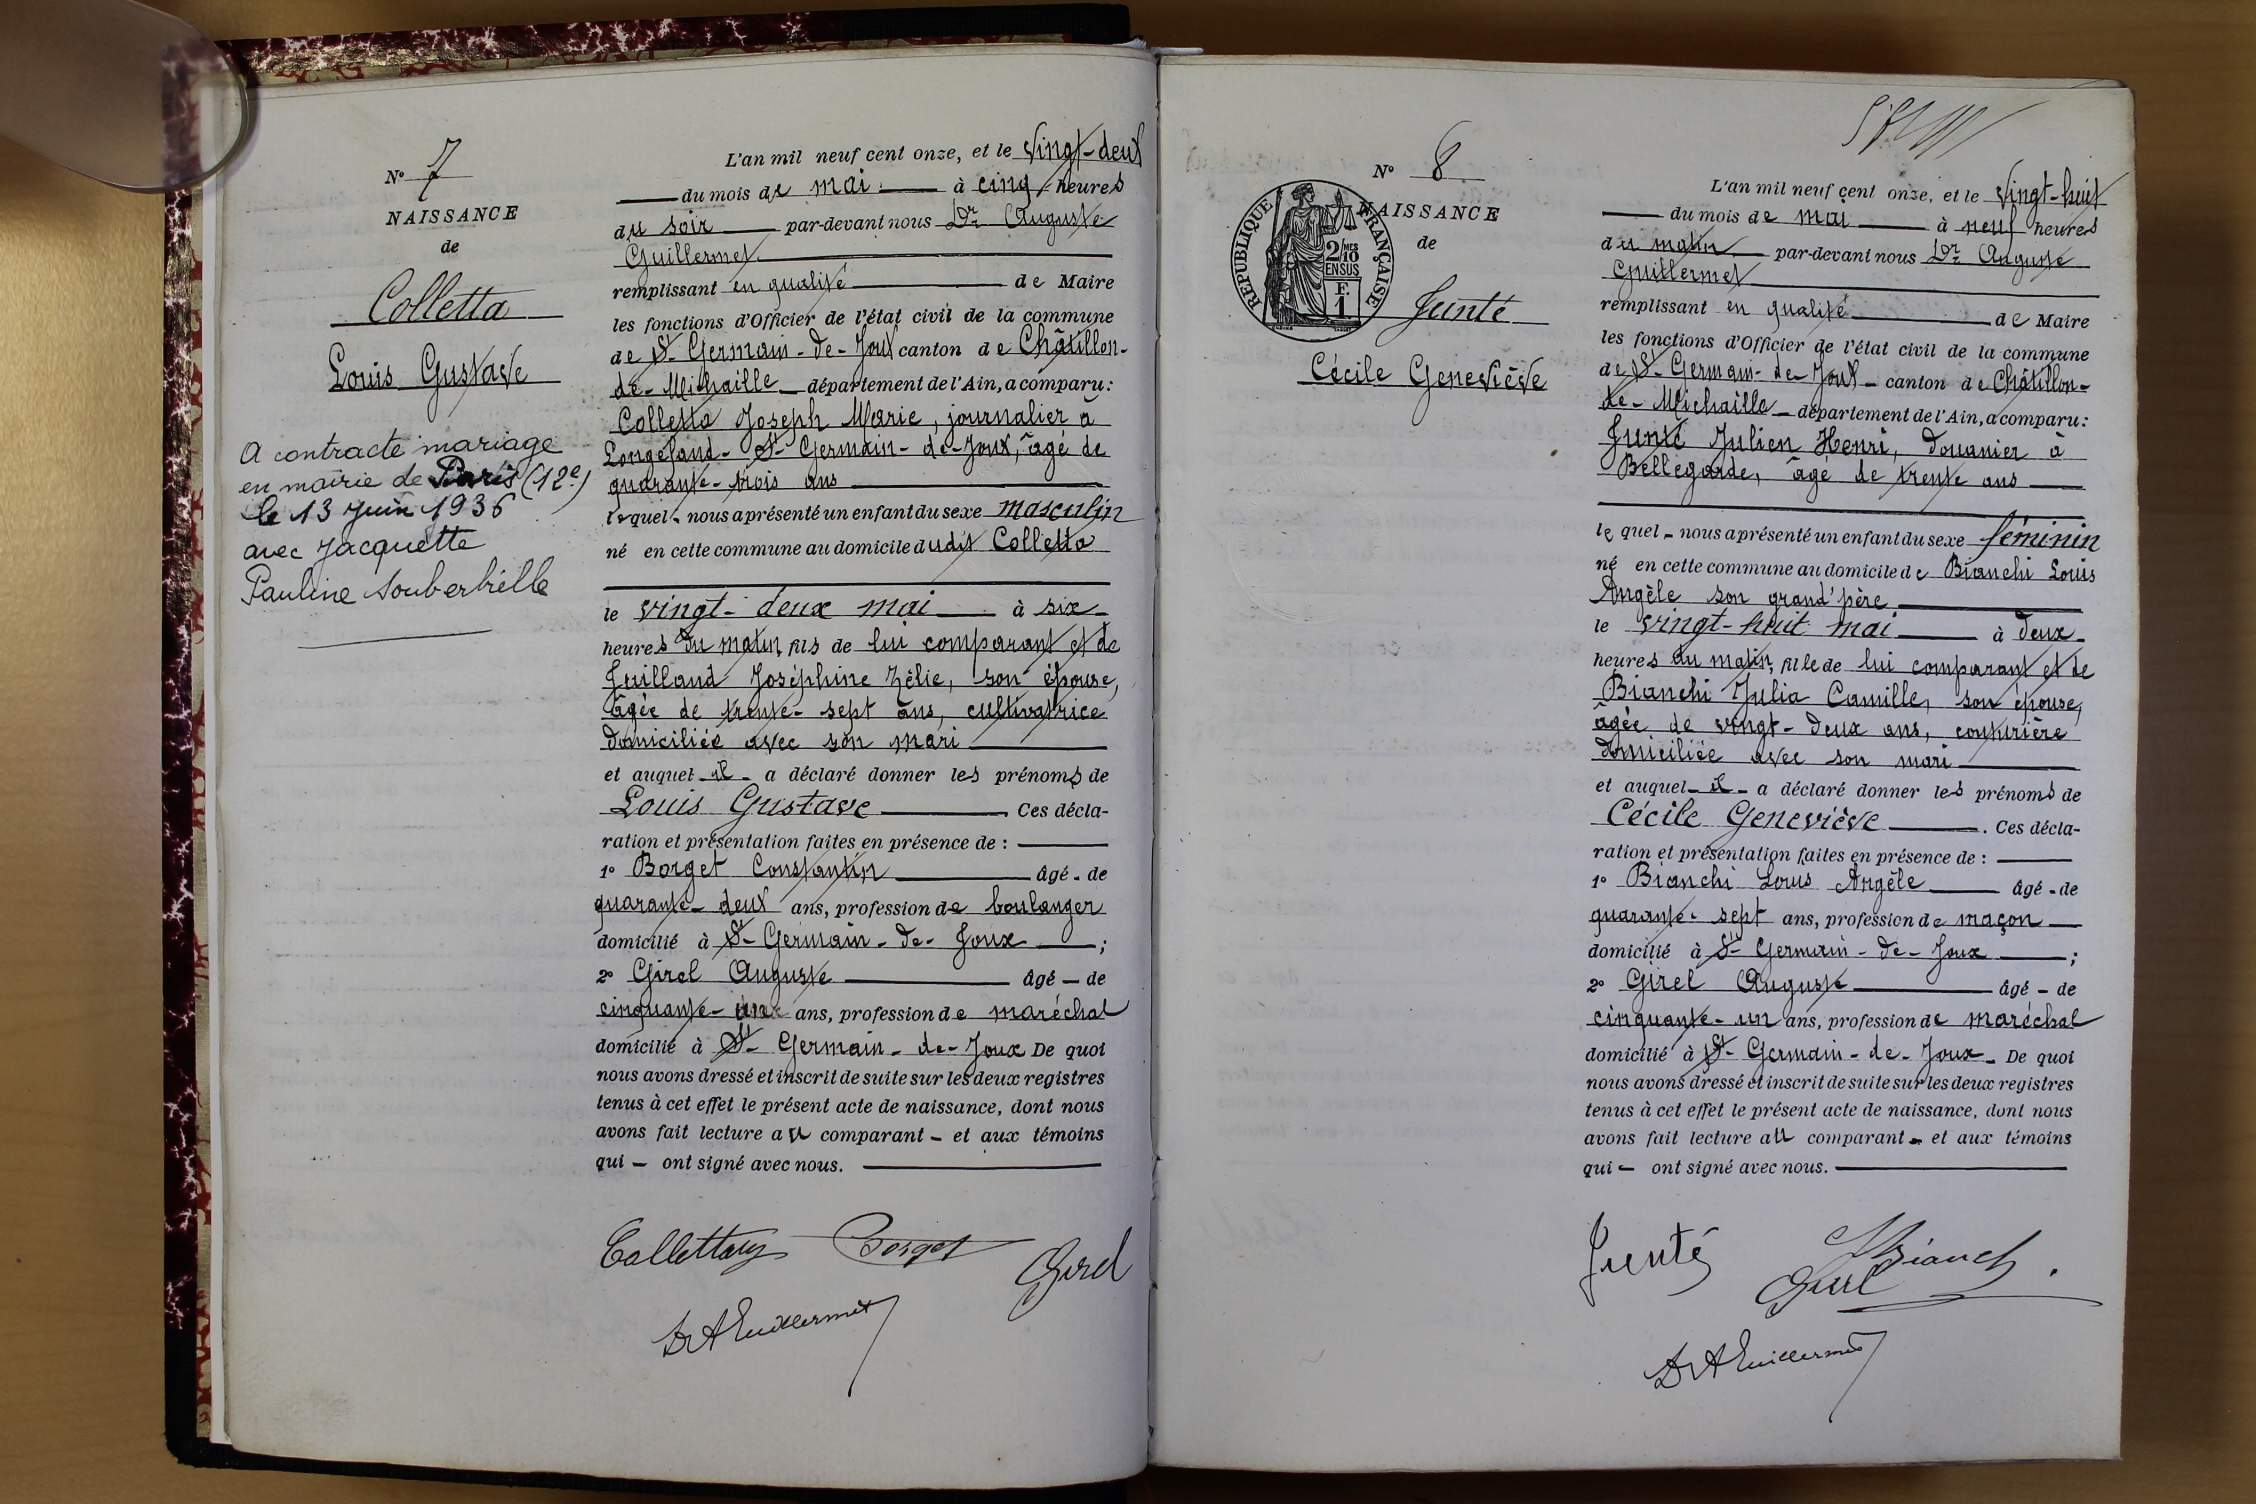 N° 7
NAISSANCE
de
Colletta
Louis Gustave
A contracté mariage
en mairie de Paris (12e)
le 13 juin 1936
avec Jacquette
Pauline Souberbielle
L'an mil neuf cent onze, et le vingt-deux
du mois de mai à cinq heures
du soir par-devant nous Dr Auguste
Guillermet
remplissant en qualité de Maire
les fonctions d'Officier de l'état civil de la commune
de St-Germain-de-Joux canton de Châtillon-
de-Michaille département de l'Ain, a comparu:
Colletta Joseph Marie, journalier à
Longefand-St-Germain-de-Joux, âgé de
quarante-trois ans
lequel nous a présenté un enfant du sexe masculin
né en cette commune au domicile dudit Colletta
le vingt-deux mai à six
heures du matin, fils de lui comparant et de
Juilland Joséphine Zélie, son épouse,
âgée de trente-sept ans, cultivatrice
domiciliée avec son mari
et auquel il a déclaré donner les prénoms de
Louis Gustave. Ces décla-
ration et présentation faites en présence de :
1° Borget Constantin âgé de
quarante-deux ans, profession de boulanger
domicilié à St-Germain-de-Joux ;
2° Girel Auguste âgé de
cinquante- ans, profession de maréchal
domicilié à St-Germain-de-Joux De quoi
nous avons dressé et inscrit de suite sur les deux registres
tenus à cet effet le présent acte de naissance, dont nous
avons fait lecture au comparant et aux témoins
qui ont signé avec nous.
Borget
Girel
Dr A Guillermet
N° 8
NAISSANCE
de
RÉPUBLIQUE FRANÇAISE
2/10 MES
EN SUS
F.
1
Junté
Cécile Geneviève
L'an mil neuf cent onze, et le vingt-huit
du mois de mai à neuf heures
du matin par-devant nous Dr Auguste
Guillermet
remplissant en qualité de Maire
les fonctions d'Officier de l'état civil de la commune
de St-Germain-de-Joux canton de Châtillon-
de-Michaille département de l'Ain, a comparu:
Junté Julien Henri, douanier à
Bellegarde, âgé de trente ans
lequel nous a présenté un enfant du sexe féminin
né en cette commune au domicile de Bianchi Louis
Angèle son grand'père
le vingt-huit mai à deux
heures du matin, fille de lui comparant et de
Bianchi Julia Camille, son épouse,
âgée de vingt-deux ans, couturière
domiciliée avec son mari
et auquel il a déclaré donner les prénoms de
Cécile Geneviève. Ces décla-
ration et présentation faites en présence de :
1° Bianchi Louis Angèle âgé de
quarante-sept ans, profession de maçon
domicilié à St-Germain-de-Joux ;
2° Girel Auguste âgé de
cinquante-un ans, profession de maréchal
domicilié à St-Germain-de-Joux De quoi
nous avons dressé et inscrit de suite sur les deux registres
tenus à cet effet le présent acte de naissance, dont nous
avons fait lecture au comparant et aux témoins
qui ont signé avec nous.
Junté
Girel
Dr A Guillermet